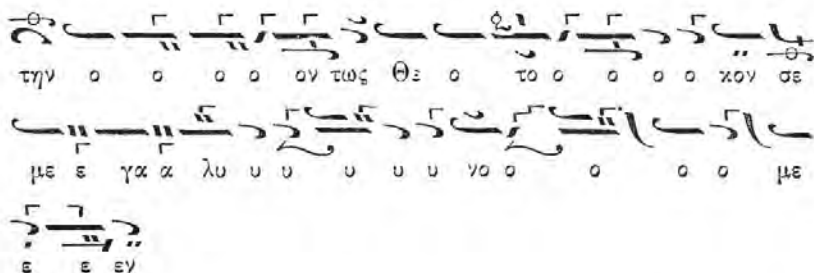 την ο ο ο ο ον τως Θε ο το ο ο ο ο κον σε
με ε γα α λυ υ υ υ υ υ νο ο ο ο ο με
ε ε εν